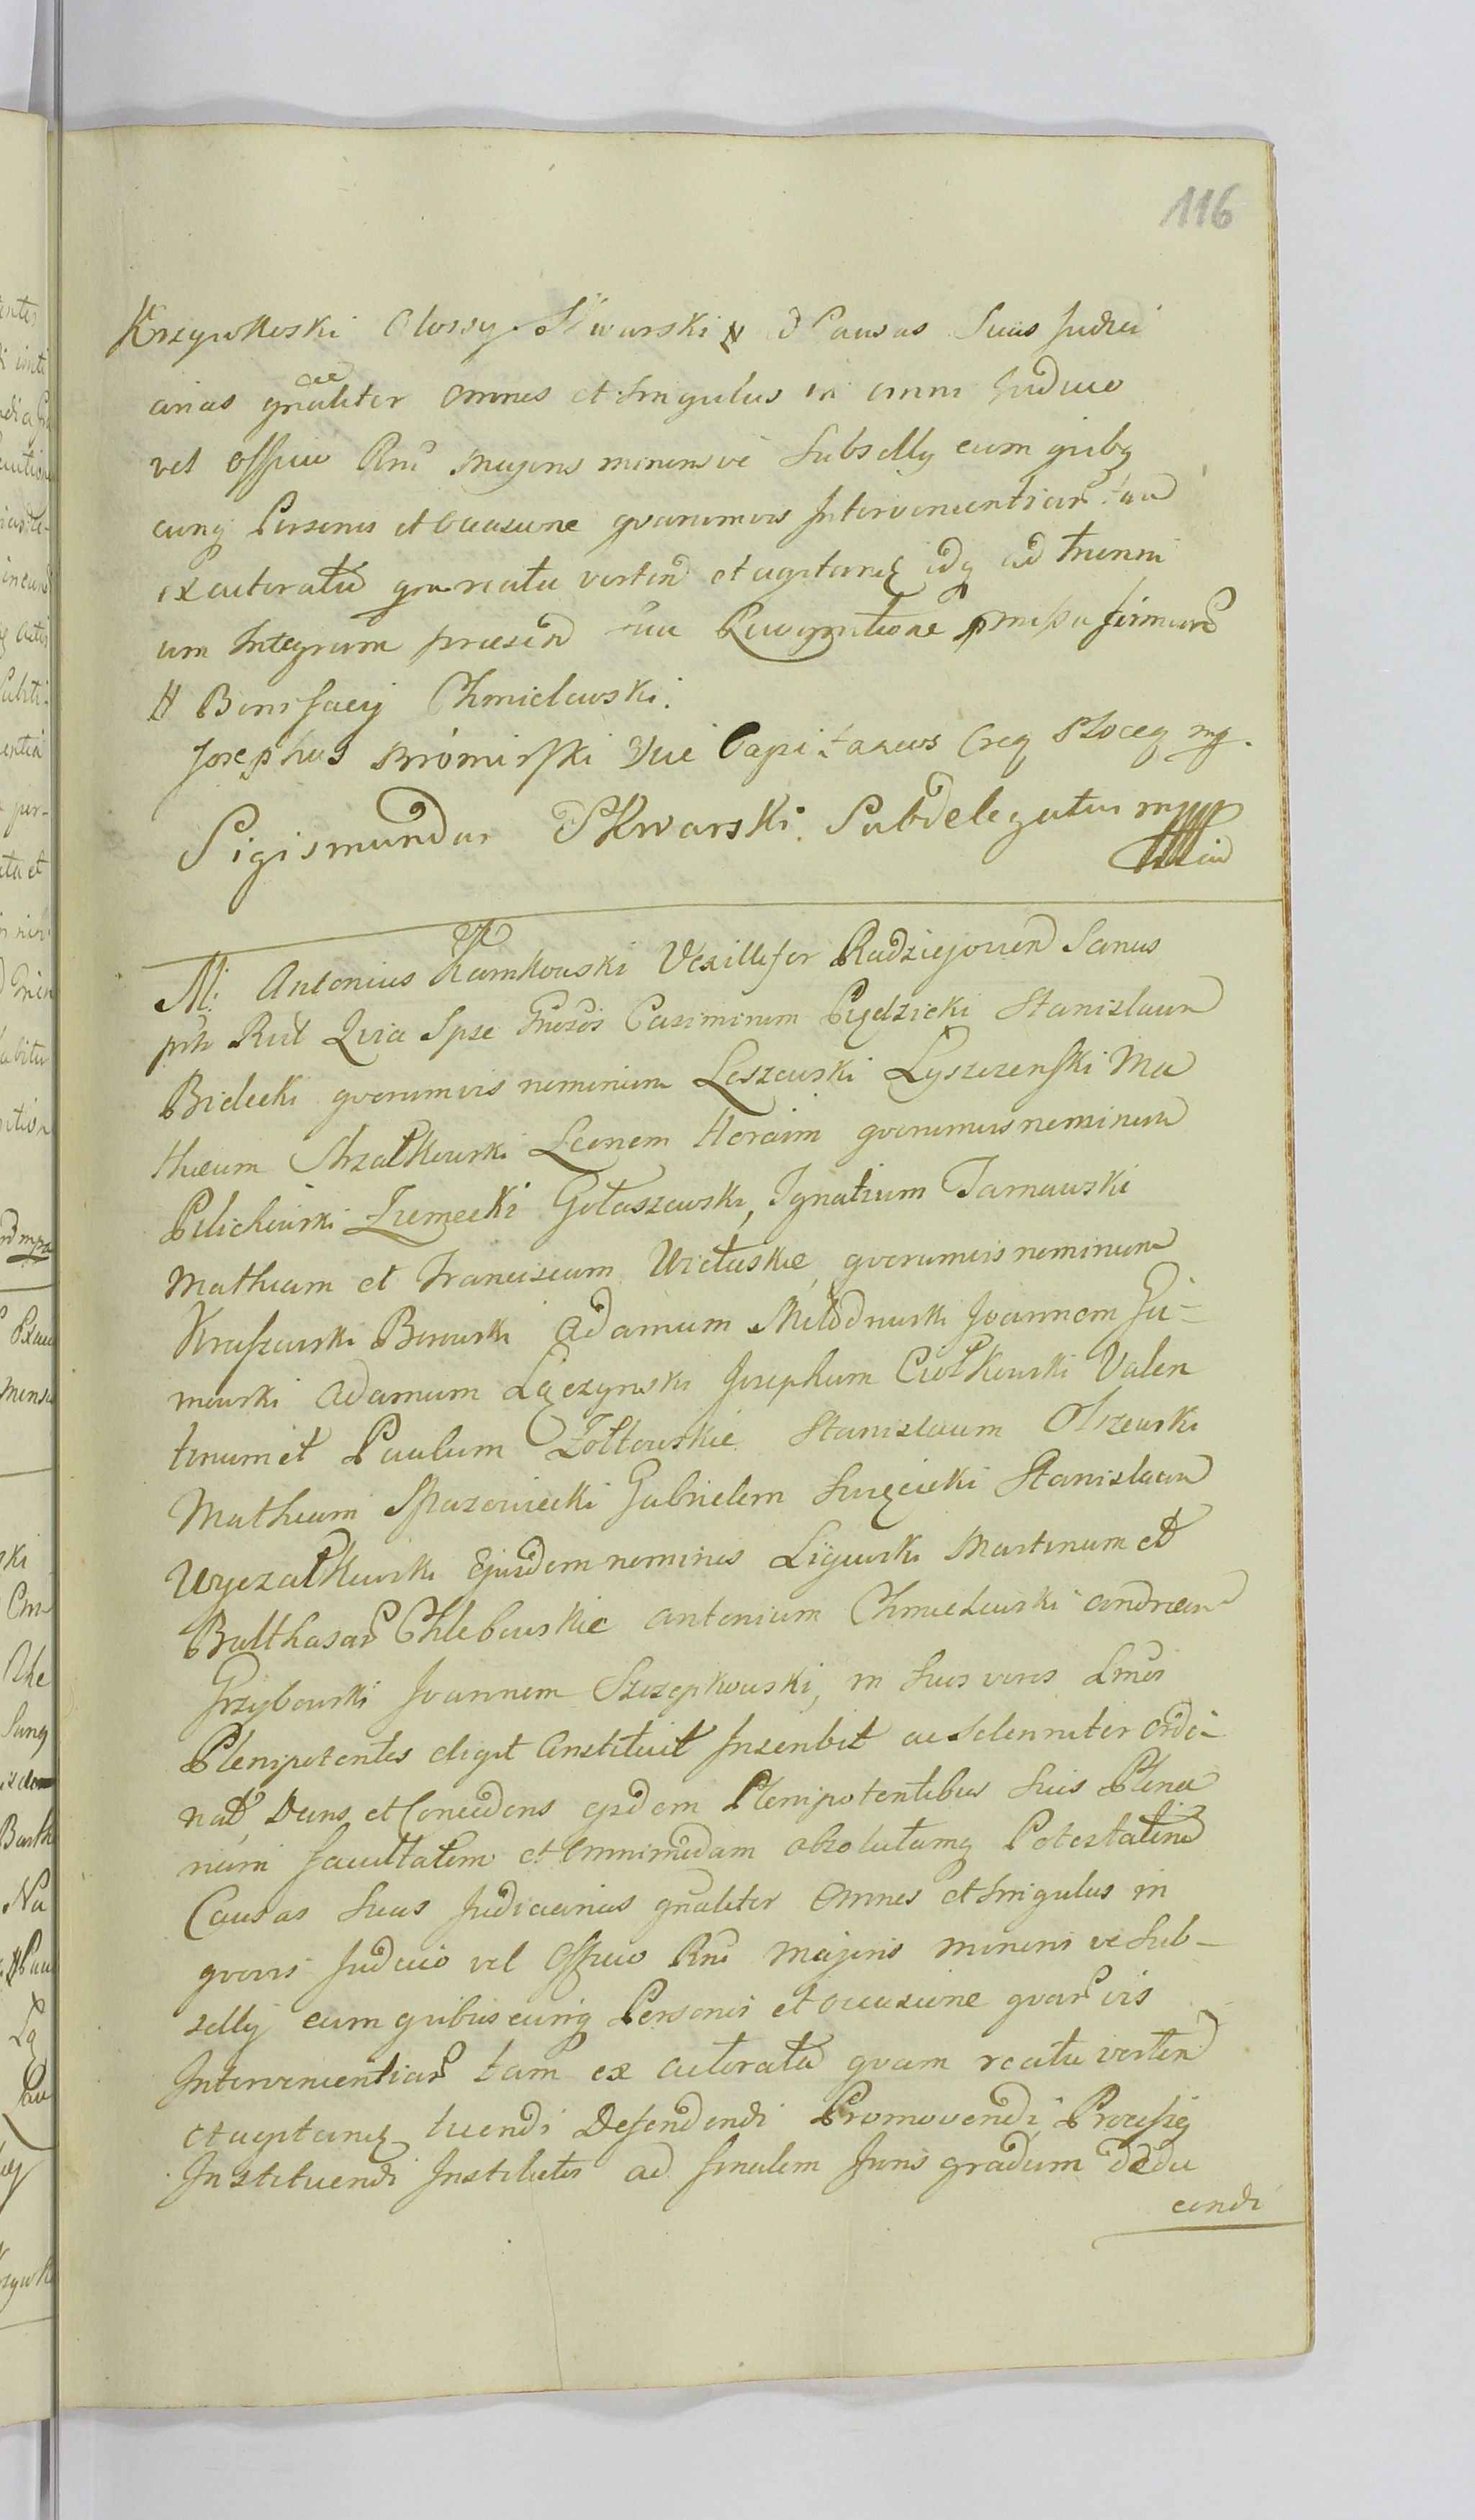 116
Krzywkoski Glossy Skwarski # ad Causas Suas Judici
arias gnaliter omnes et Singulas in omni Judicio
vel officio Rni majoris minorisve Subselly cum quibq
cunq Personis et occasione quarumvis Intervenientiar tam
ex actoratu quam reatu verten et agitanq idq ad trienni
um Integrum praesen sua Recognitione mpa firmand
# Bonifacij Chmielewski.
Josephus Miromirski Vice Capitaneus Creq Ploceq mp.
Sigismundus Skwarski Subdelegatus mpp
M. Antonius Kamkowski Vexillifer Radziejovien Sanus
pth Rtt Quia Ipse Gnosos Casimirum Pędzicki Stanislaum
Bielecki quorumvis nominum Leszewski Lyszczenski Ma
thaeum Strzałkowski Leonem Heraim quorumvis nominum
Pilichowski Ziemęcki Gołaszewski, Ignatium Tarnawski
Mathiam et Franciscum Wictuskie, quorumvis nominum
Kraszewski Borowski Adamum Młodnuski Joannem Gu-
mowski Adamum Lączynski Josephum Ciołkowski Valen
tinum et Paulum Zołtowskie Stanislaum Olszewski
Mathiam Mazowiecki Gabrielem Święcicki Stanislaum
Wyczałkowski Ejusdem nominis Ligowski Martinum et
Balthasar Chlebowskie Antonium Chmielewski Andream
Grzybowski Joannem Szczepkowski, in Suos veros Lmos
Plenipotentes eligit Constituit Inscribit ac Solenniter ordi-
nat, Dans et Concedens eisdem Plenipotentibus Suis Plena
riam facultatem et omnimodam absolutamq Potestatem
Causas Suas Judiciarias gnaliter Omnes et Singulas in
quovis Judicio vel Officio Rni Majoris minoris ve Sub-
selly cum quibuscunq Personis et occasione quar vis
Intervenientiar tam ex actoratu quam reatu verten
et agitanq tuendi Defendendi Promovendi Processq
Instituendi Institutos ad finalem Juris gradum dedu
cendi